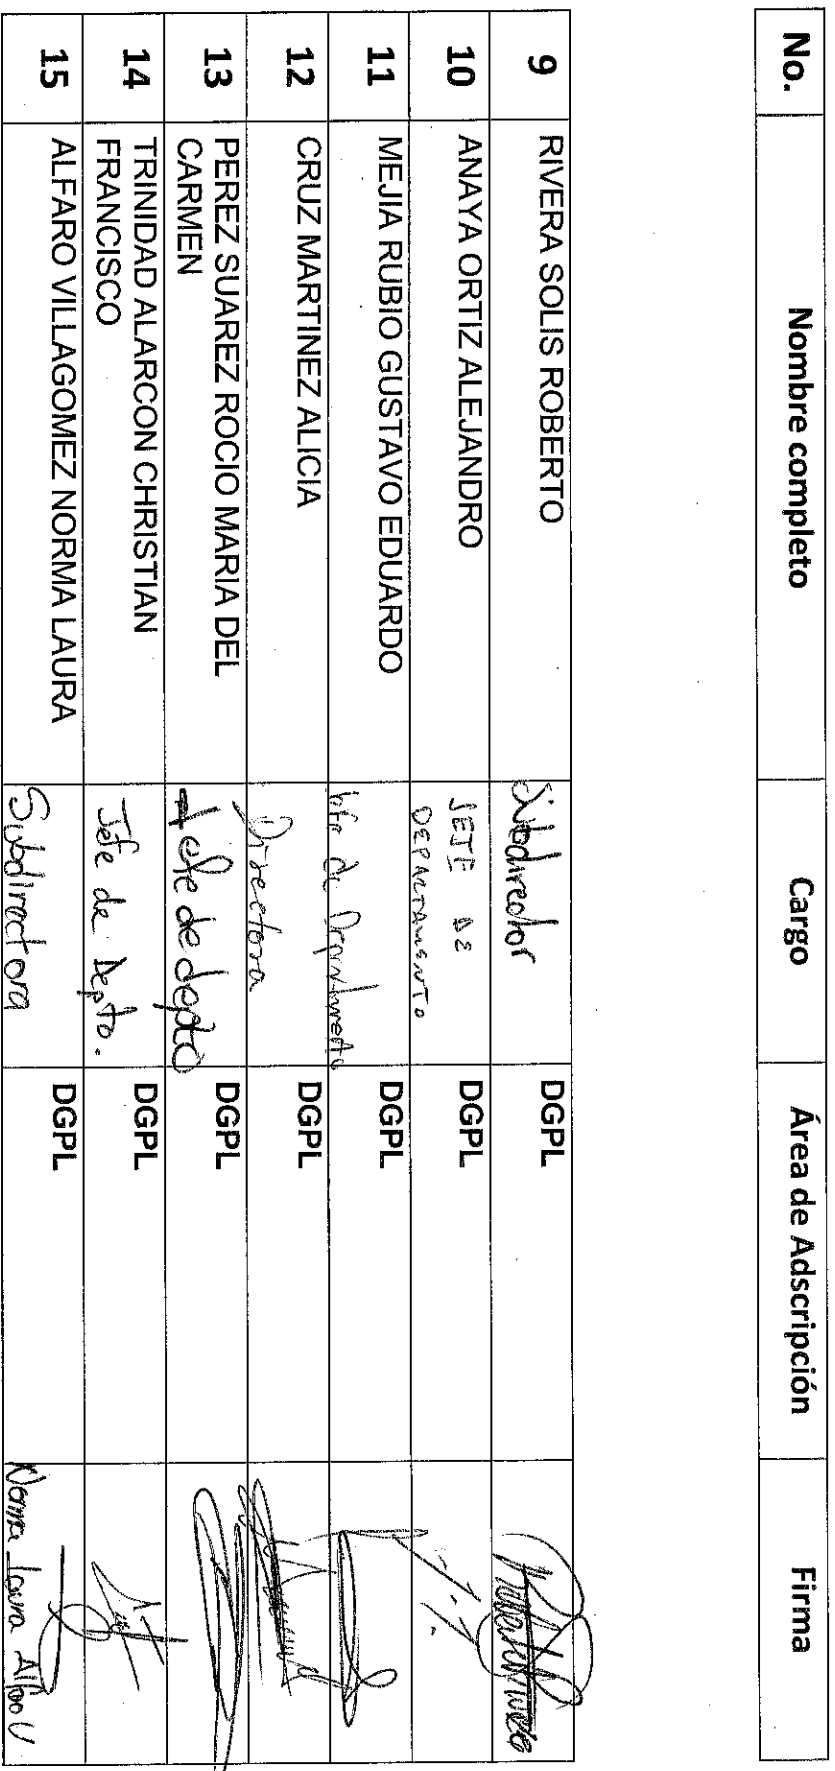 No. Nombre completo Cargo Área de Adscripción Firma
9 RIVERA SOLIS ROBERTO Subdirector DGPL
10 ANAYA ORTIZ ALEJANDRO JEFE DE DEPARTAMENTO DGPL
11 MEJIA RUBIO GUSTAVO EDUARDO Jefe de Departamento DGPL
12 CRUZ MARTINEZ ALICIA Directora DGPL
13 PEREZ SUAREZ ROCIO MARIA DEL
CARMEN Jefe de depto DGPL
14 TRINIDAD ALARCON CHRISTIAN
FRANCISCO Jefe de Depto. DGPL
15 ALFARO VILLAGOMEZ NORMA LAURA Subdirectora DGPL Norma Laura Alfaro V